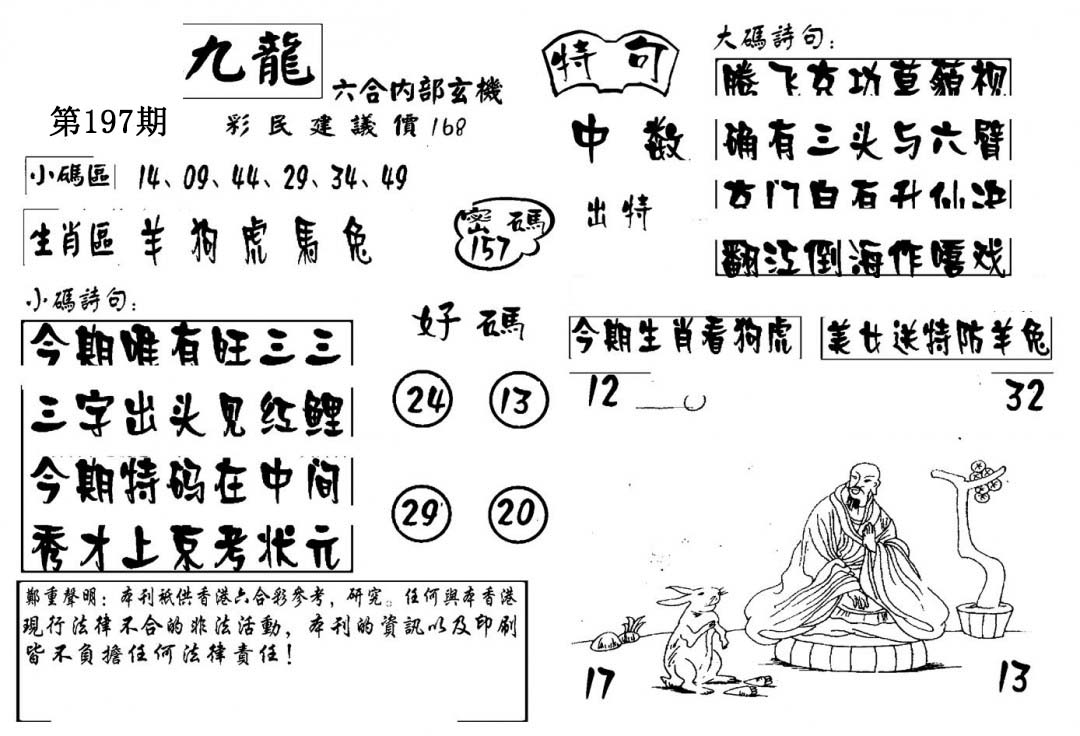 九龍
六合内部玄機
第197期
彩民建議價168
小碼區 14、09、44、29、34、49
生肖區 羊 狗 虎 馬 兔
密碼
157
小碼詩句：
今期唯有旺三三
三字出头见红鲤
今期特码在中间
秀才上京考状元
好碼
24 13
29 20
鄭重聲明：本刊祇供香港六合彩參考，研究。任何與本香港
現行法律不合的非法活動，本刊的資訊以及印刷
皆不負擔任何法律責任！
特句
中数
出特
大碼詩句：
腾飞克功草藐视
确有三头与六臂
石升仙
翻江倒海作嘻戏
今期生肖看狗虎
美女送特防羊兔
12
32
17
13